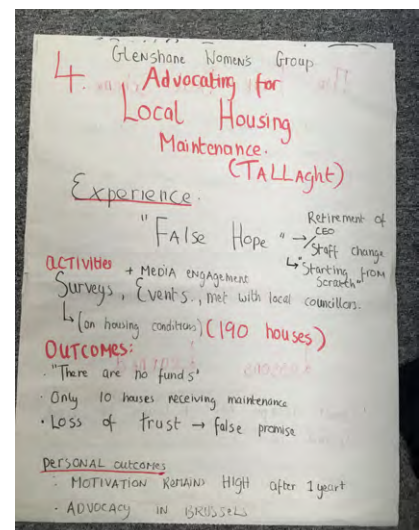 Glenshane Women's Group
4. Advocating for
Local Housing
Maintenance.
(TALLAght)
Experience.
"False Hope" → Retirement of CEO / Staff change
↳ "Starting from Scratch"
activities + MEDIA ENGAGEMENT
Surveys, Events., met with local councillors.
↳ (on housing conditions) (190 houses)
OUTCOMES:
· "There are no funds"
· Only 10 houses receiving maintenance
· Loss of trust → false promise
personal outcomes
- MOTIVATION REMAINS HIGH after 1 year+
- ADVOCACY IN BRUSSELS